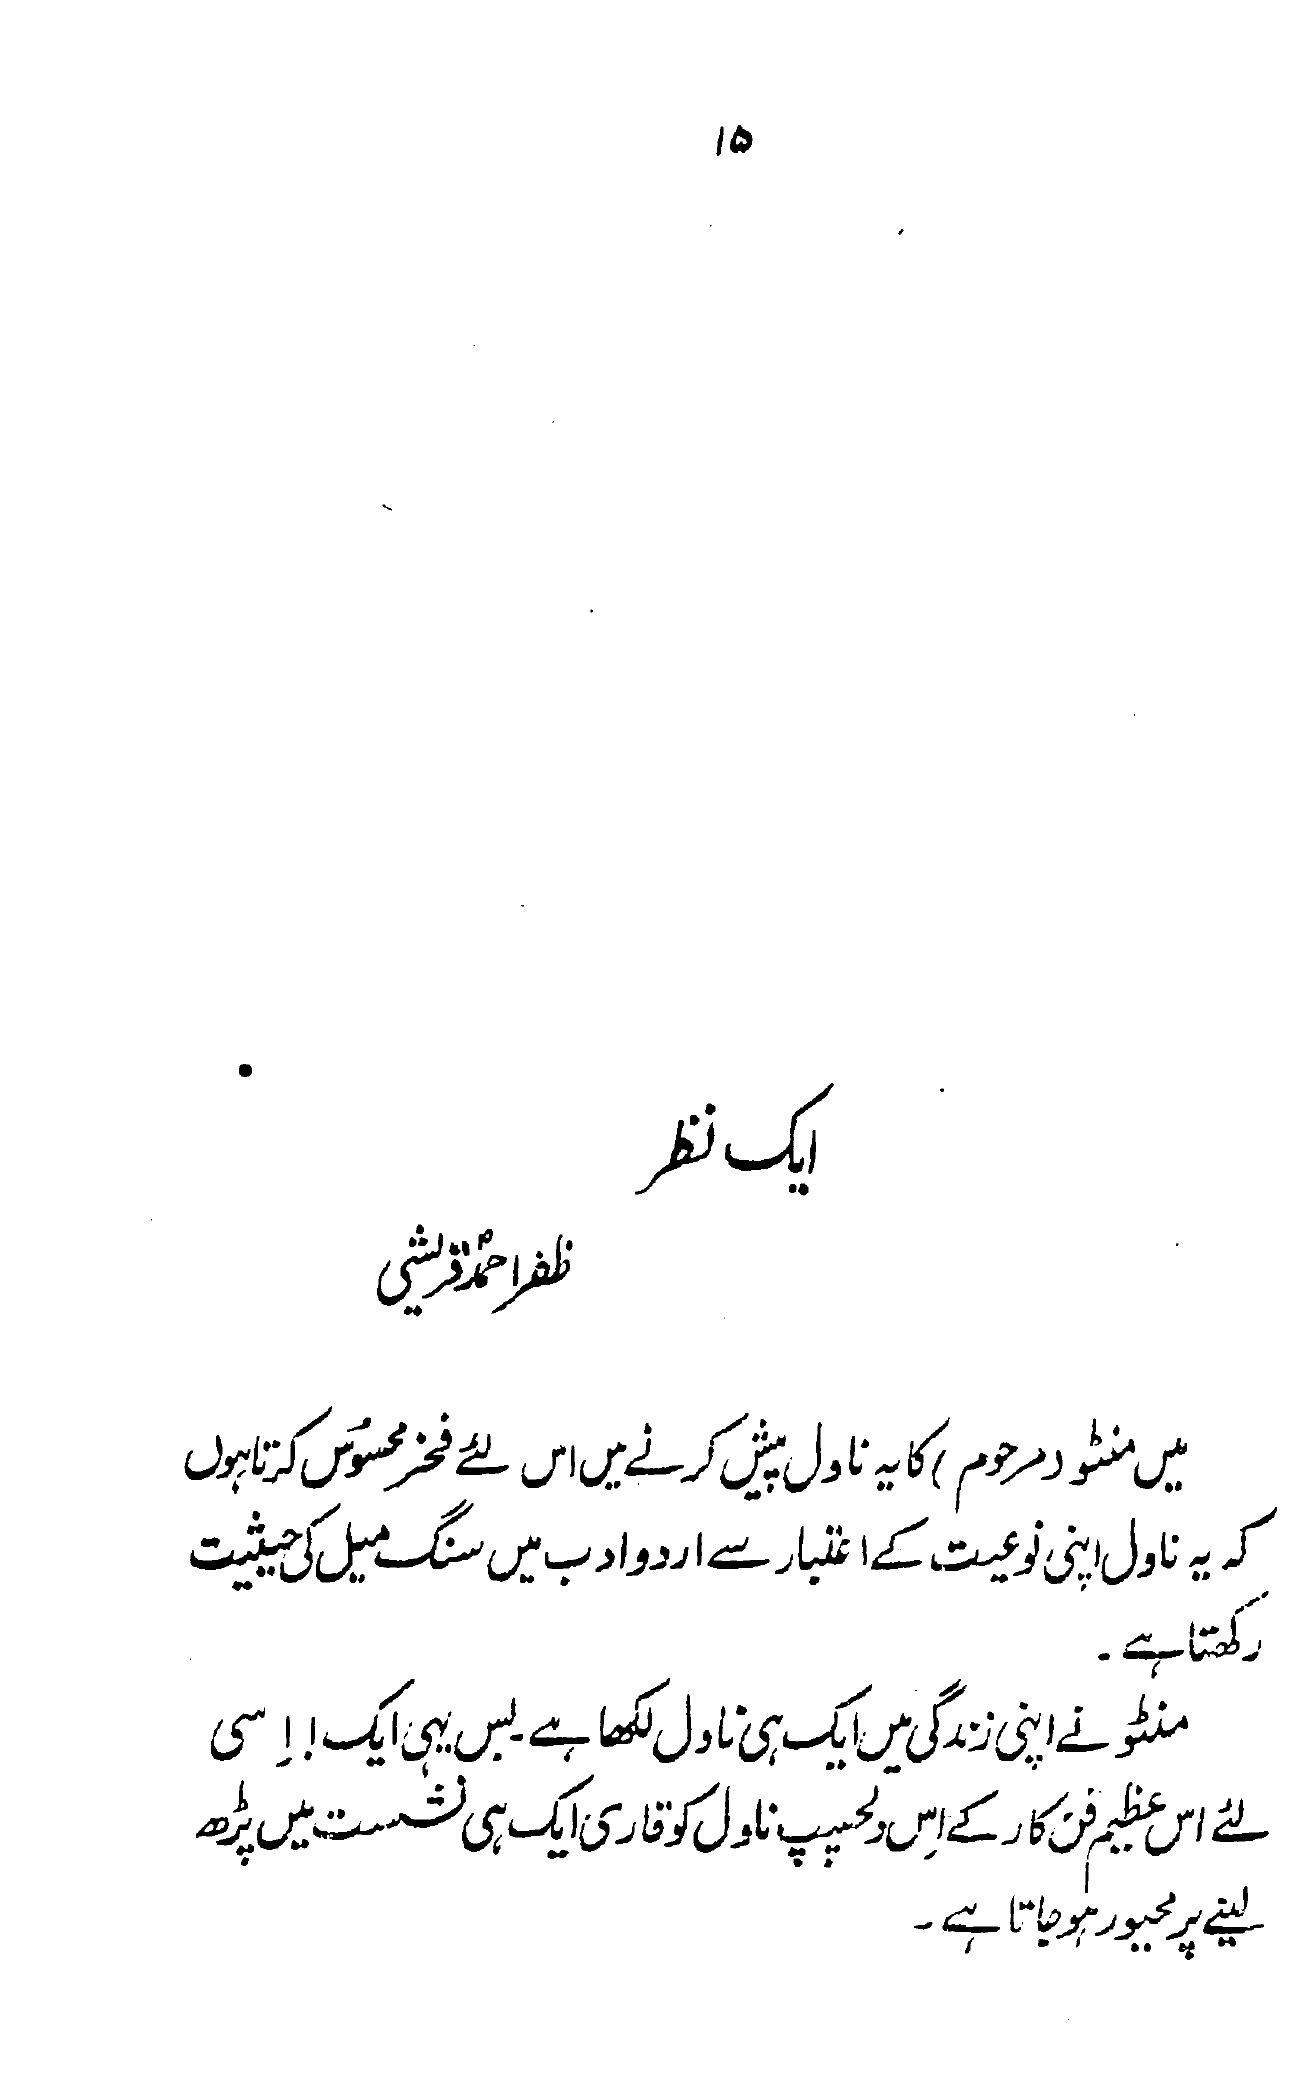 ۱۵
ایک نظر
ظفر احمد قریشی
میں منٹو (مرحوم) کا یہ ناول پیش کرنے میں اس لئے فخر محسوس کرتا ہوں
کہ یہ ناول اپنی نوعیت کے اعتبار سے اردو ادب میں سنگ میل کی حیثیت
رکھتا ہے ۔
منٹو نے اپنی زندگی میں ایک ہی ناول لکھا ہے۔ بس یہی ایک! اِسی
لئے اس عظیم فن کار کے اِس دلچسپ ناول کو قاری ایک ہی نشست میں پڑھ
لینے پر مجبور ہو جاتا ہے ۔